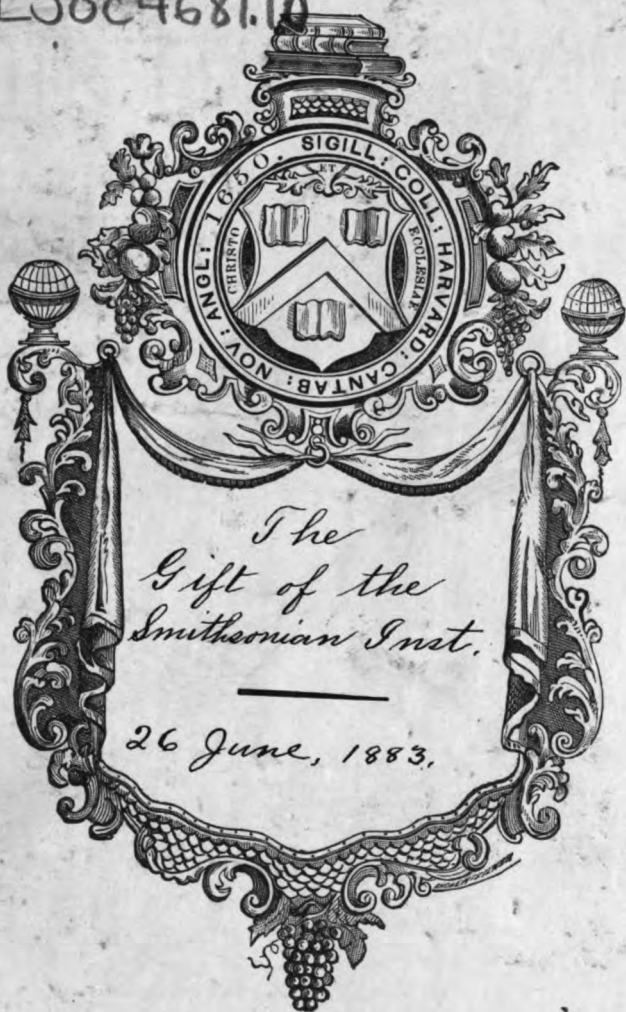 LSoc4681.10
SIGILL: COLL: HARVARD: CANTAB: NOV: ANGL: 1650.
CHRISTO
ET
ECCLESIAE
The
Gift of the
Smithsonian Inst.
26 June, 1883.